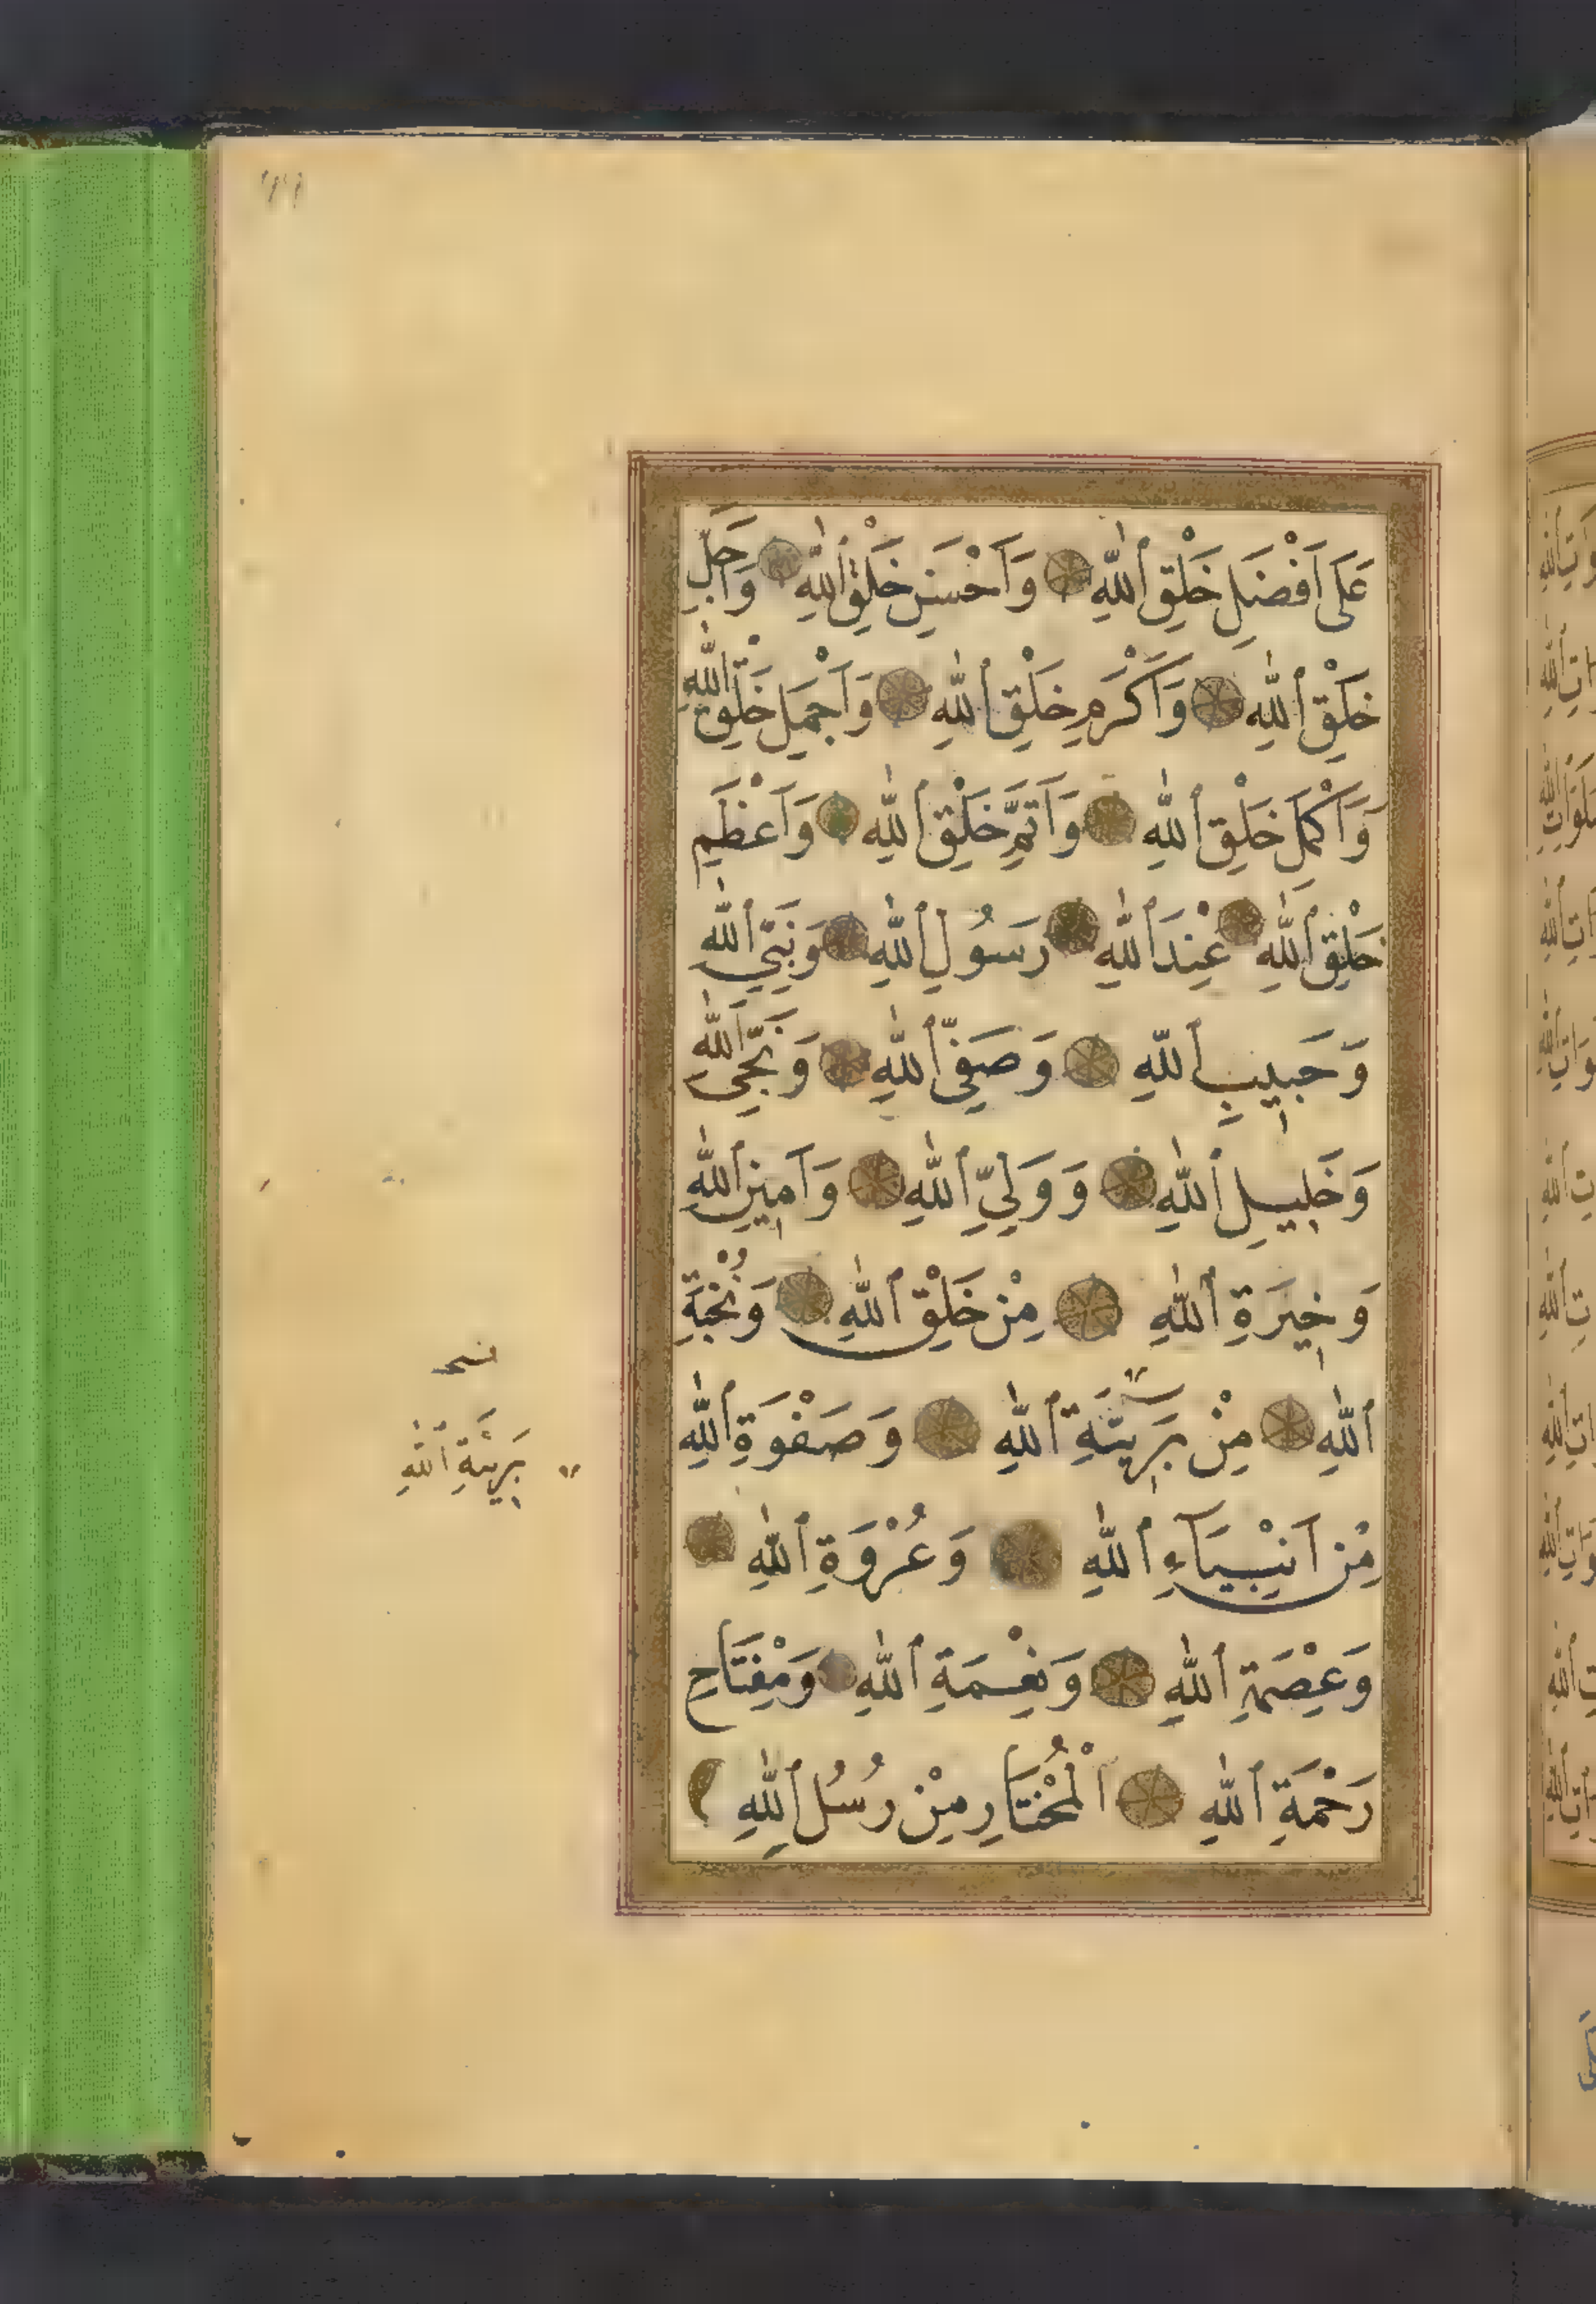 عَلَى اَفْضَلِ خَلْقِ اللّٰهِ وَاَحْسَنِ خَلْقِ اللّٰهِ وَاَجَلِّ
خَلْقِ اللّٰهِ وَاَكْرَمِ خَلْقِ اللّٰهِ وَاَجْمَلِ خَلْقِ اللّٰهِ
وَاَكْمَلِ خَلْقِ اللّٰهِ وَاَتَمِّ خَلْقِ اللّٰهِ وَاَعْظَمِ
خَلْقِ اللّٰهِ عِنْدَ اللّٰهِ رَسُولِ اللّٰهِ وَنَبِيِّ اللّٰهِ
وَحَبِيبِ اللّٰهِ وَصَفِيِّ اللّٰهِ وَنَجِيِّ اللّٰهِ
وَخَلِيلِ اللّٰهِ وَوَلِيِّ اللّٰهِ وَاَمِينِ اللّٰهِ
وَخِيرَةِ اللّٰهِ مِنْ خَلْقِ اللّٰهِ وَنُخْبَةِ
اللّٰهِ مِنْ بَرِيَّةِ اللّٰهِ وَصَفْوَةِ اللّٰهِ
مِنْ اَنْبِيَاءِ اللّٰهِ وَعُرْوَةِ اللّٰهِ
وَعِصْمَةِ اللّٰهِ وَنِعْمَةِ اللّٰهِ وَمِفْتَاحِ
رَحْمَةِ اللّٰهِ اَلْمُخْتَارِ مِنْ رُسُلِ اللّٰهِ
بَرِيئَةِ اللّٰهِ